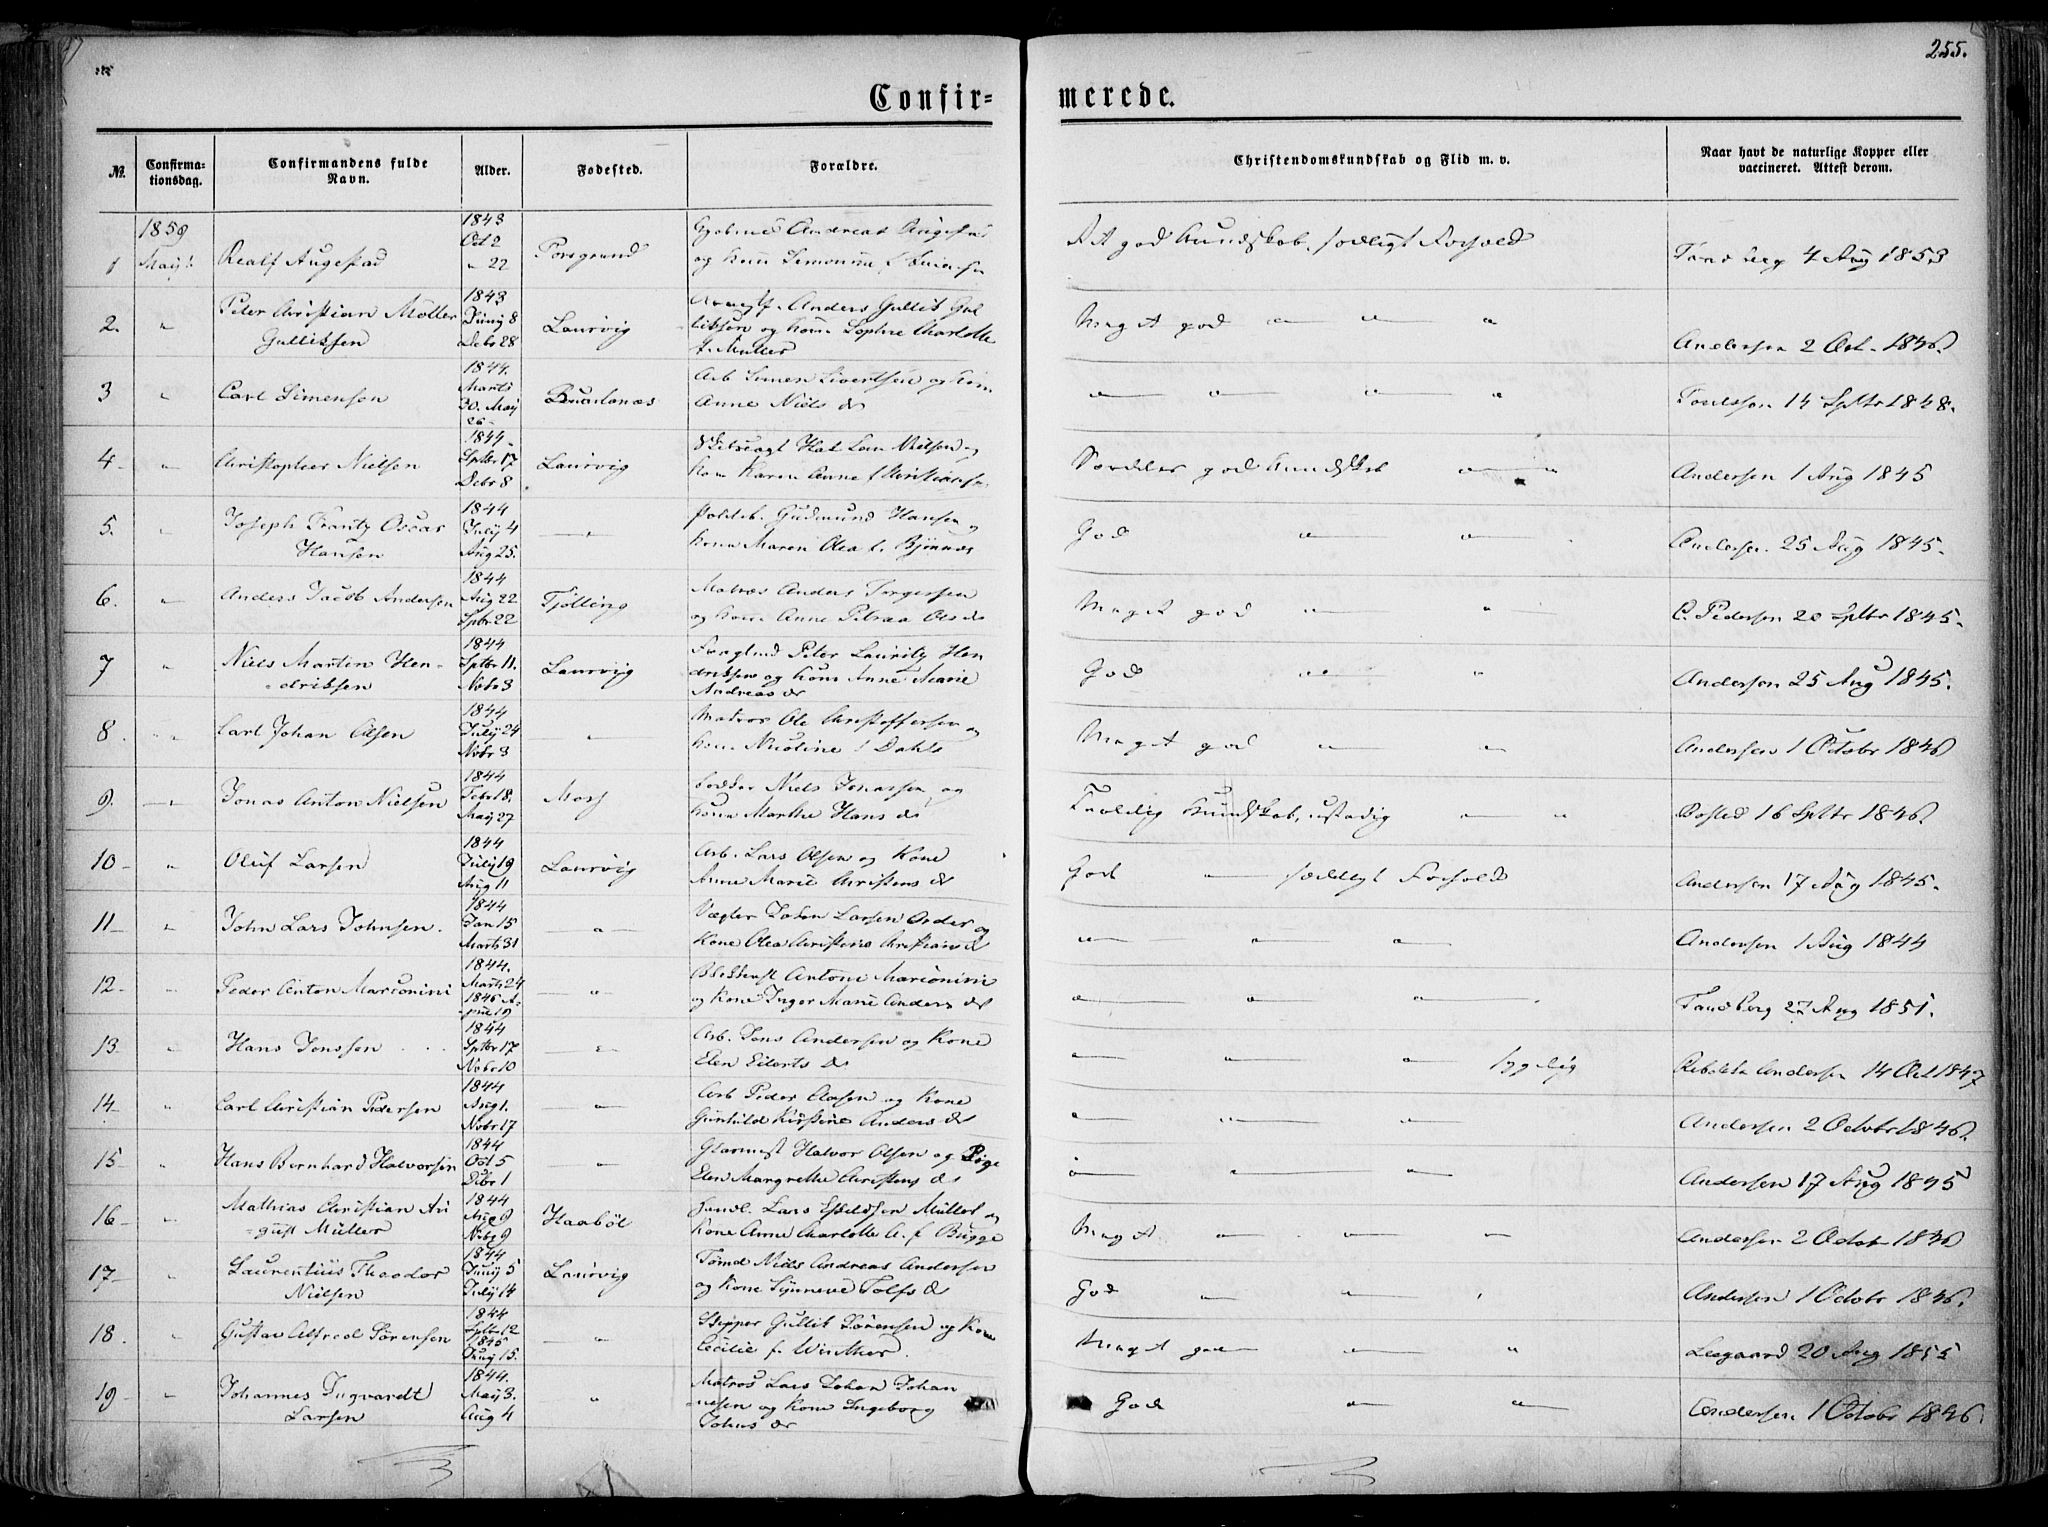 255.
Confir= merede.
№.
Confirma-
tionsdag.
Confirmandens fulde
Navn.
Alder.
Fødested.
Forældre.
Christendomskundskab og Flid m. v.
Naar havt de naturlige Kopper eller
vaccineret. Attest derom.
1859
1 May 1. Realf Augestad
1843
Oct 2
" 22
Porsgrund
Andreas Augestad
og Kone Simonine f.
god Kundskab, sædeligt Forhold
4 Aug 1853
2. " Peter Christian Möller
Gulliksen
1843
Juny 8
Debr 28
Laurvig
Anders Gullik Gul
liksen og Kone Sophie Charlotte
f. Müller
Meget god " " "
Andersen 2 Oct. 1846.
3 " Carl Simensen
1844.
Marts
30. May
26-
Brunlanæs
Arb Simen Sivertsen og Kone
Anne Niels d.
" " " "
14 Sptbr 1848.
4 - " Christopher Nielsen
1844-
Sptbr 17
Debr 8
Laurvig
Nielsen og
Kone Karen Anne Christians
god Kundskab " "
Andersen 1 Aug 1845
5. " Joseph Frantz Oscar
Hansen
1844
July 4
Aug 25.
"
Politib. Gudmund Hansen og
Kone Maren Olea f. Bjönnæs
God " "
Andersen. 25 Aug 1845.
6. " Anders Jacob Andersen
1844
Aug 22
Sptbr 22
Tjölling
Matros Anders Torgersen
og Kone Anne Petraa Ols d.
Meget god " "
C. Pedersen 20 Sptbr 1845.
7 " Niels Martin Hen-
driksen
1844
Sptbr 11.
Nobr 3
Laurvig
Peter Lauritz Hen
driksen og Kone Anne Marie
Andreas d.
God " "
Andersen 25 Aug 1845.
8. " Carl Johan Olsen
1844
July 24
Nobr 3
"
Matros Ole Christoffersen og
Kone Nicoline f Dahl
Meget god " "
Andersen 1 Octobr 1846
9. " Jonas Anton Nielsen
1844
Febr 18.
May 27
Moss
Niels Jonassen og
Kone Marthe Hans d.
Kundskab, ustadig " "
16 Sptbr 1846.
10 - " Oluf Larsen
1844
July 19
Aug 11
Laurvig
Arb. Lars Olsen og Kone
Anne Marie Christens d.
God " sædeligt Forhold
Andersen 17 Aug 1845.
11 - " John Lars Johnsen.
1844
Jan 15
Marts 31
"
Vægter John Larsen og
Kone Olea Christine Christians d.
" " "
Andersen 1 Aug 1844
12 - " Peder Anton Marconini
1844.
Marts 24
1845 A-
pril 19
"
Antoni Marconini
og Kone Inger Marie Anders d.
" " "
Tandberg 27 Aug 1851.
13 - " Hans Jonssen
1844
Sptbr 17
Nobr 10
"
Arb. Jons Andersen og Kone
Elen Eilerts d.
" " " sygelig
Andersen 14 Oct 1847
14 - " Carl Christian Pedersen
1844
Aug 1.
Nobr 17
"
Arb Peder Olsen og Kone
Gunhild Kirstine Anders d.
" " "
Andersen 2 Octobr 1846.
15 - " Hans Bernhard Halvorsen
1844
Oct 5
Debr 1
"
Glarmest Halvor Olsen og Pige
Elen Margrethe Christens d.
" " "
Andersen 17 Aug 1845
16 - " Mathias Christian Au
gust Müller
1844
Aug 9
Nobr 9
Haaböl
Handl. Lars Müller og
Kone Anne Charlotte A. f. Bugge
Meget " " "
Andersen 2 Octob 1846
17 - " Laurentius Theodor
Nielsen
1844
Juny 5
July 14
Laurvig
Tömd Niels Andreas Andersen
og Kone Synneve Tolfs d.
God " " "
Andersen 1 Octobr 1846.
18. " Gustav Alfred Sörensen
1844
Sptbr 12
1845
Juny 15.
"
Skipper Gullik Sörensen og Kone
Cecilie f. Winther.
Meget god " "
Leegaard 20 Aug 1855
19 - " Johannes Ingvardt
Larsen
1844.
May 3.
Aug 4
"
Matros Lars Johan Johan
nesen og Kone Ingeborg
Johns d.
God " "
Andersen 1 Octobr 1846.